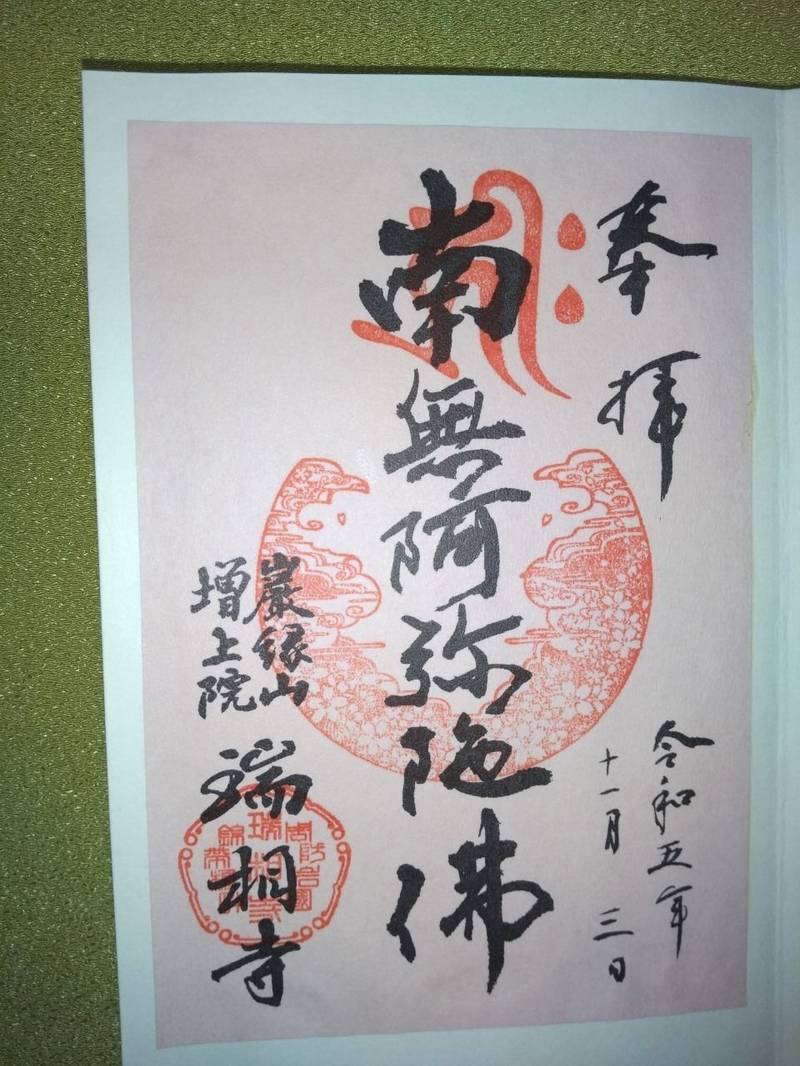 奉拝
令和五年
十一月三日
南無阿弥陀佛
巖縁山
増上院
瑞相寺